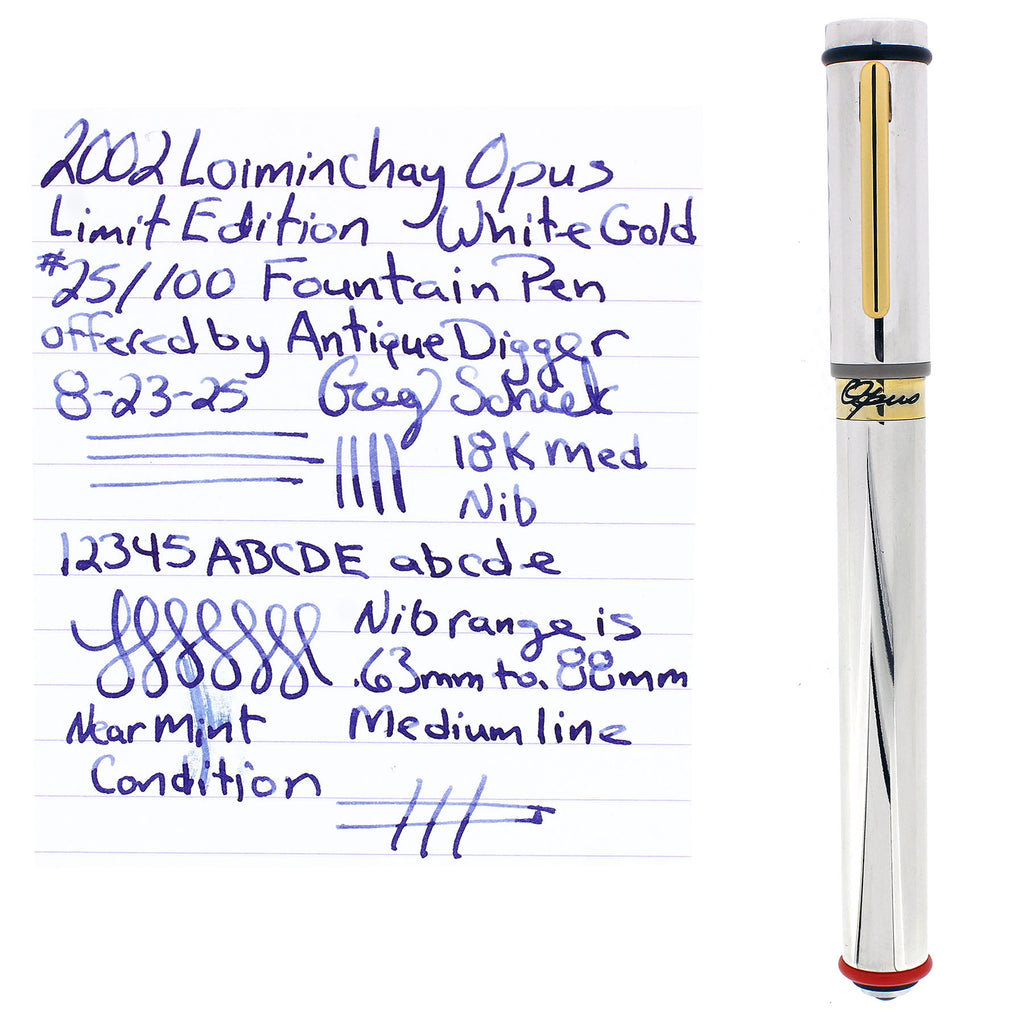 2002 Loiminchay Opus
Limit Edition White Gold
#25/100 Fountain Pen
offered by Antique Digger
8-23-25 Greg
18K Med
Nib
12345 ABCDE abcde
Nib range is
.63mm to .88mm
Near Mint
Condition
Medium line
Opus